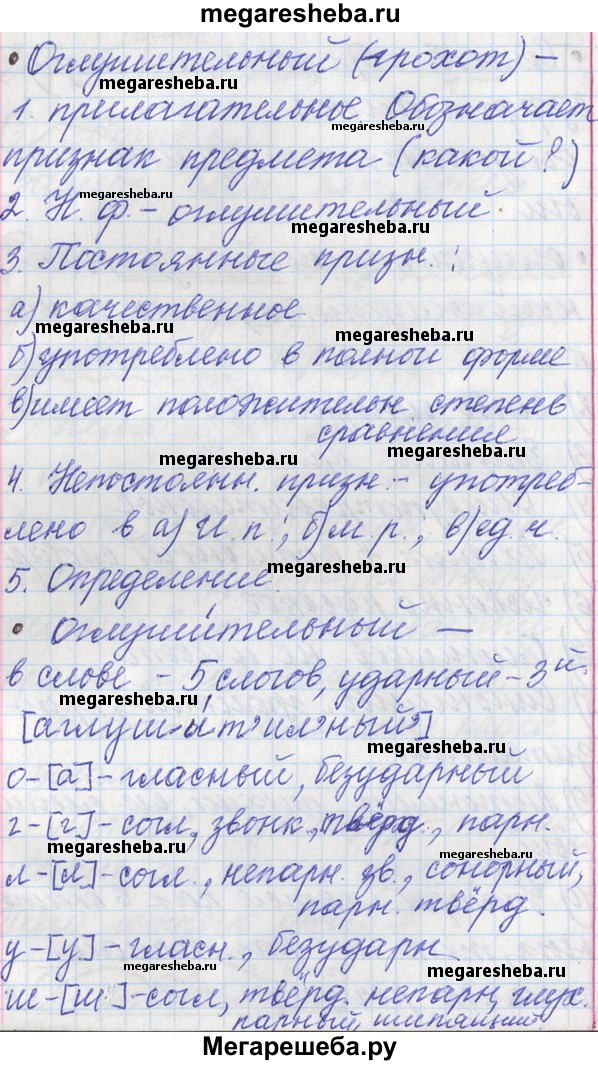 megaresheba.ru
• Оглушительный (грохот) –
megaresheba.ru
1. прилагательное Обозначает
megaresheba.ru
признак предмета (какой?)
megaresheba.ru
2. Н. ф. – оглушительный
megaresheba.ru
3. Постоянные призн.:
а) качественное
megaresheba.ru
megaresheba.ru
б) употреблено в полной форме
в) имеет положительн степень
сравнения
megaresheba.ru
megaresheba.ru
4. Непостоянн. призн. – употреб-
лено в а) И. п.; б) м. р.; в) ед. ч.
megaresheba.ru
5. Определение.
megaresheba.ru
• оглушительный —
в слове – 5 слогов, ударный – 3й.
megaresheba.ru
[аглушыт'ил'ный']
megaresheba.ru
о – [а] – гласный, безударный
megaresheba.ru
г – [г] – согл, звонк., твёрд., парн.
megaresheba.ru
л – [л] – согл., непарн. зв., сонорный,
megaresheba.ru
парн. твёрд.
у – [у] – гласн., безударн
megaresheba.ru
megaresheba.ru
ш – [ш] – согл, твёрд. непарн, глух.
парный, шипящий.
Мегарешеба.ру